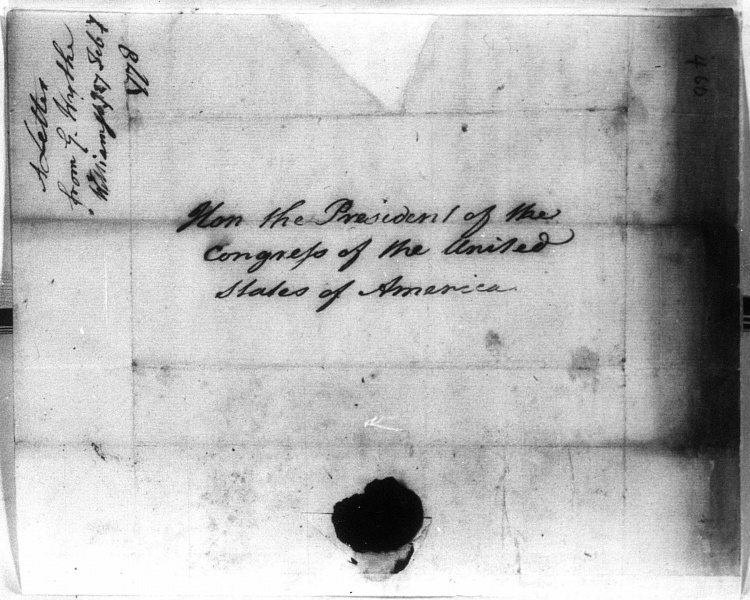 A Letter
from G. Wythe
Williamsbg Feb 7
1778
460
Hon the President of the
Congreſs of the United
States of America.